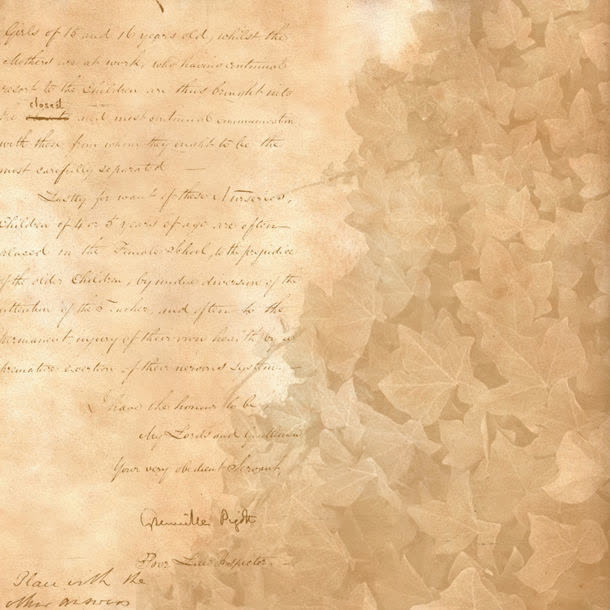 Girls of 15 and 16 years old, whilst the
Mothers are at work, who having continual
resort to the Children are thus brought into
the closest and most continual communication
with those from whom they ought to be the
most carefully separated —
Lastly for want of these Nurseries,
Children of 4 or 5 years of age are often
placed in the Female School, to the prejudice
of the older Children, by undue diversion of the
attention of the Teacher, and often to the
permanent injury of their own health by a
premature exertion of their nervous system. —
I have the honour to be
My Lords and Gentlemen
Your very obedient Servant
Grenville Pigott
Poor Law Inspector —
Place with the
other answers